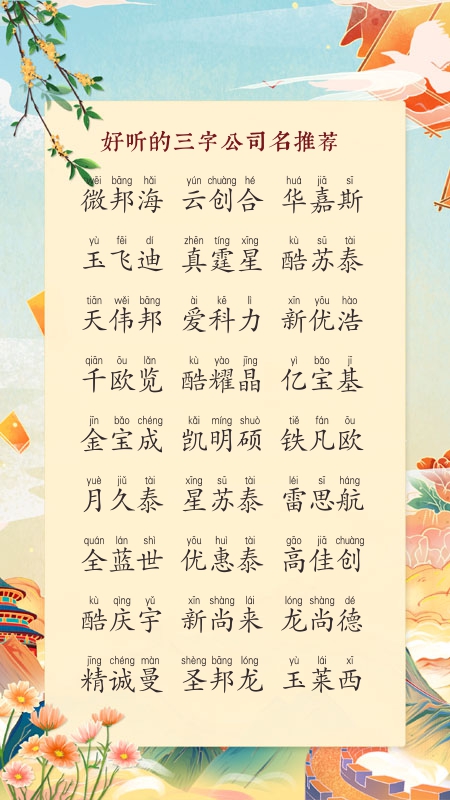 好听的三字公司名推荐
wēi bāng hǎi yún chuàng hé huá jiā sī
微邦海 云创合 华嘉斯
yù fēi dí zhēn tíng xīng kù sū tài
玉飞迪 真霆星 酷苏泰
tiān wěi bāng ài kē lì xīn yōu hào
天伟邦 爱科力 新优浩
qiān ōu lǎn kù yào jīng yì bǎo jī
千欧览 酷耀晶 亿宝基
jīn bǎo chéng kǎi míng shuò tiě fán ōu
金宝成 凯明硕 铁凡欧
yuè jiǔ tài xīng sū tài léi sī háng
月久泰 星苏泰 雷思航
quán lán shì yōu huì tài gāo jiā chuàng
全蓝世 优惠泰 高佳创
kù qìng yǔ xīn shàng lái lóng shàng dé
酷庆宇 新尚来 龙尚德
jīng chéng màn shèng bāng lóng yù lái xī
精诚曼 圣邦龙 玉莱西